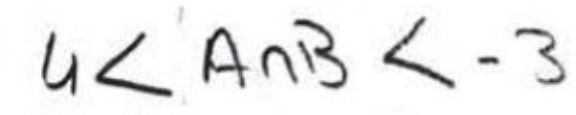 4 < A∩B < -3